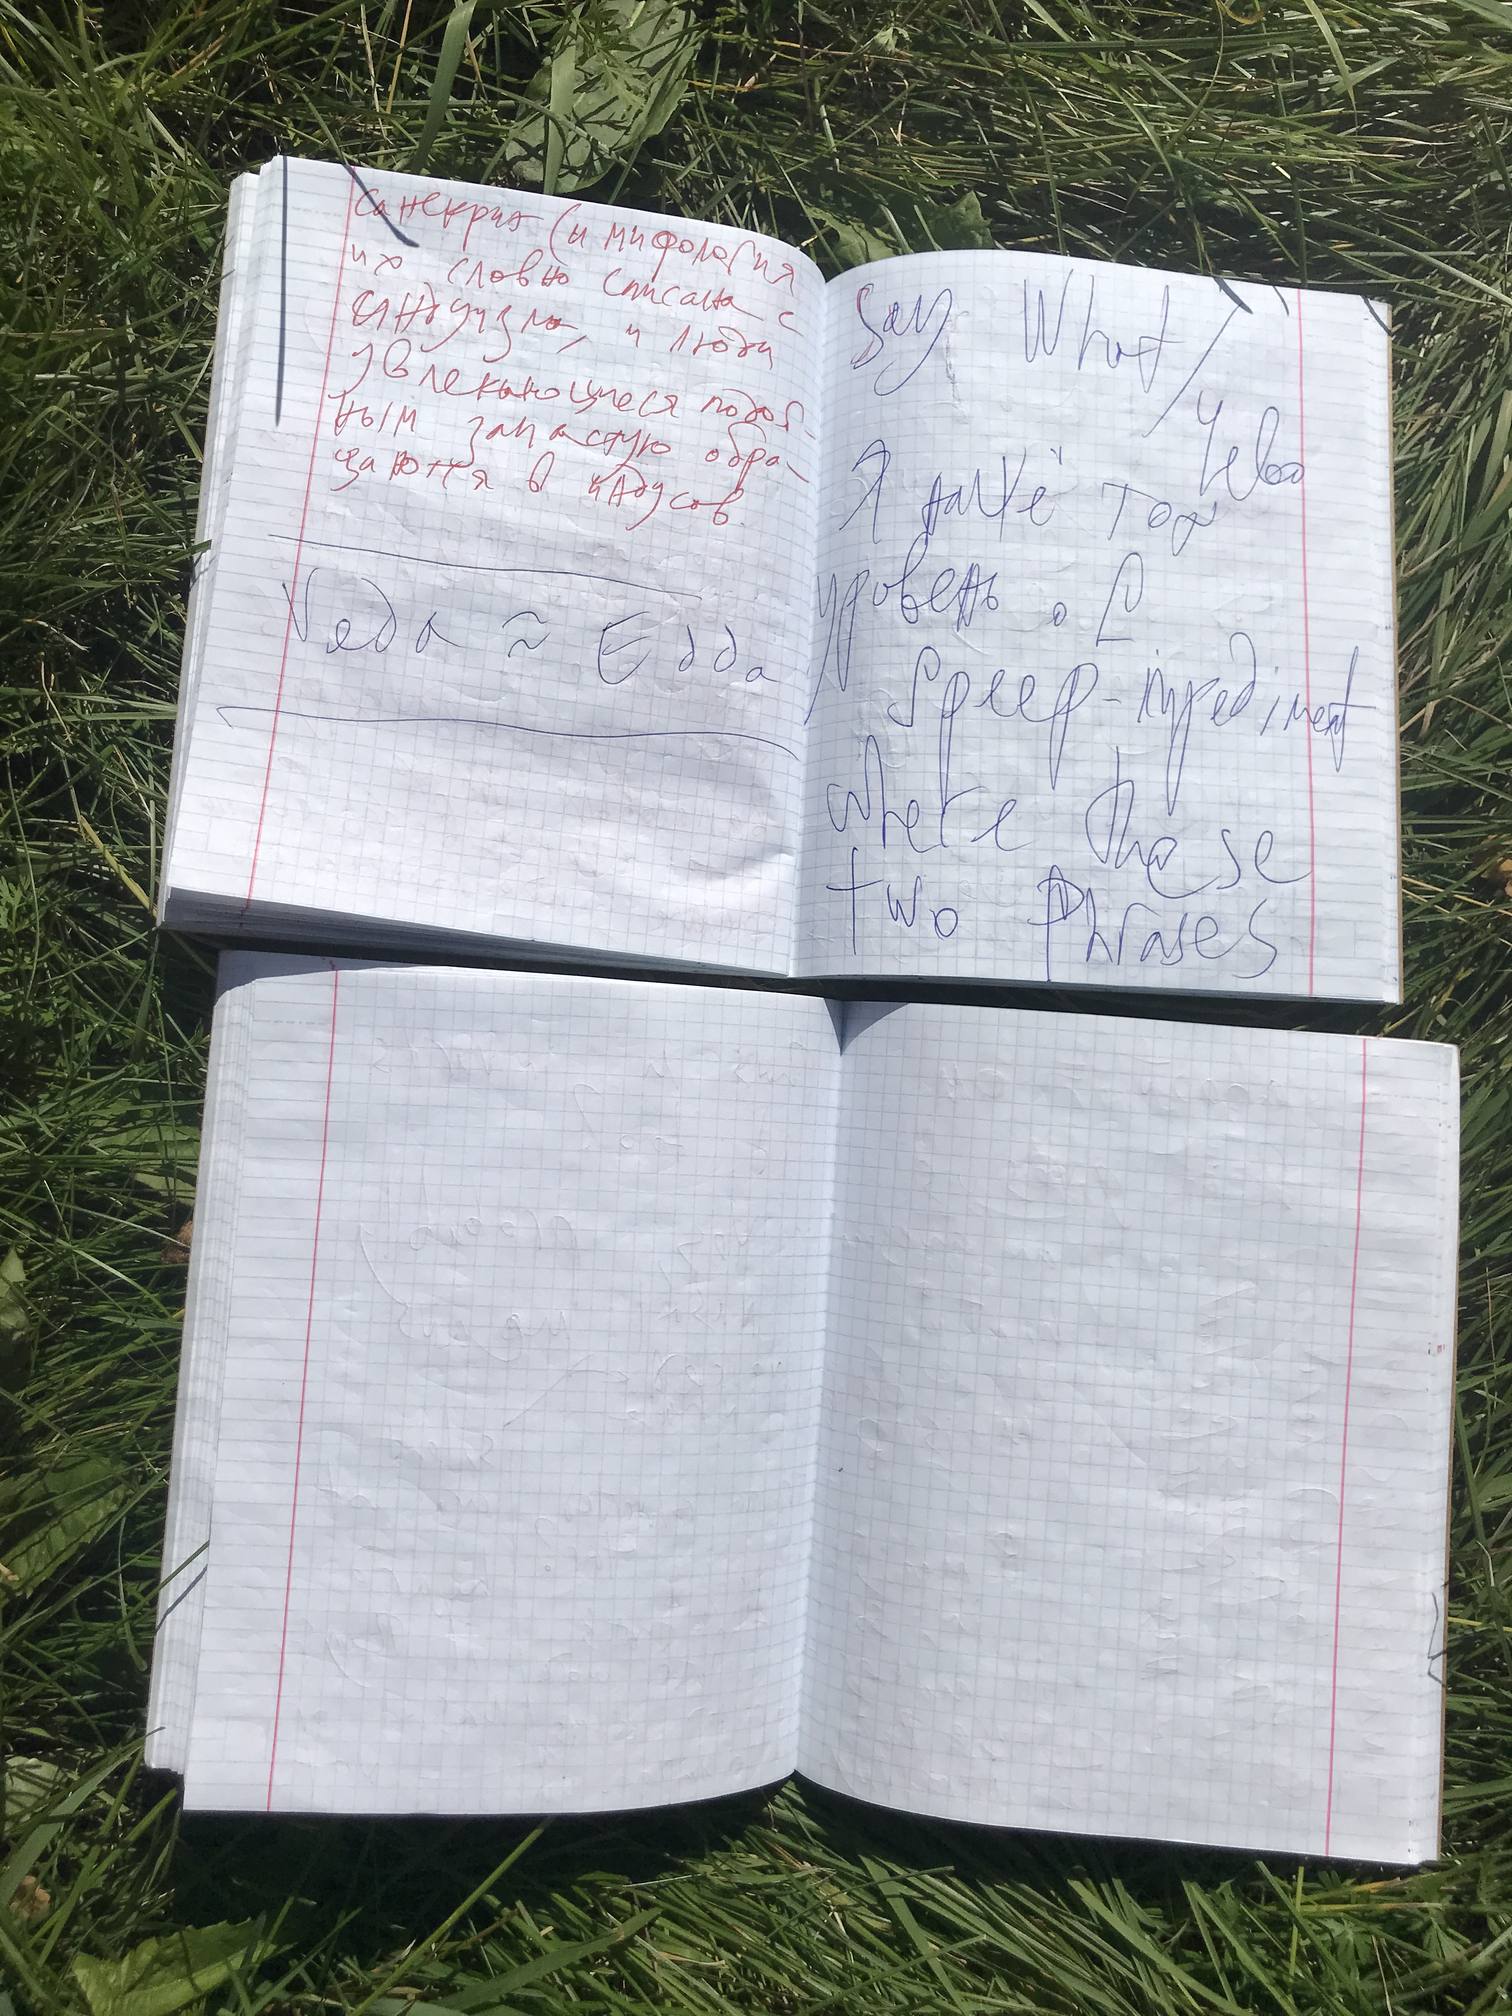 санскрит (и мифология
их словно списана с
индуизма, и люди
увлекающиеся подоб-
ным зачастую обра-
щаются в индусов.
Veda ≈ Edda
Say What /
Чево
Я нашё тож
уровень of
Speep-impediment
where these
two phrases